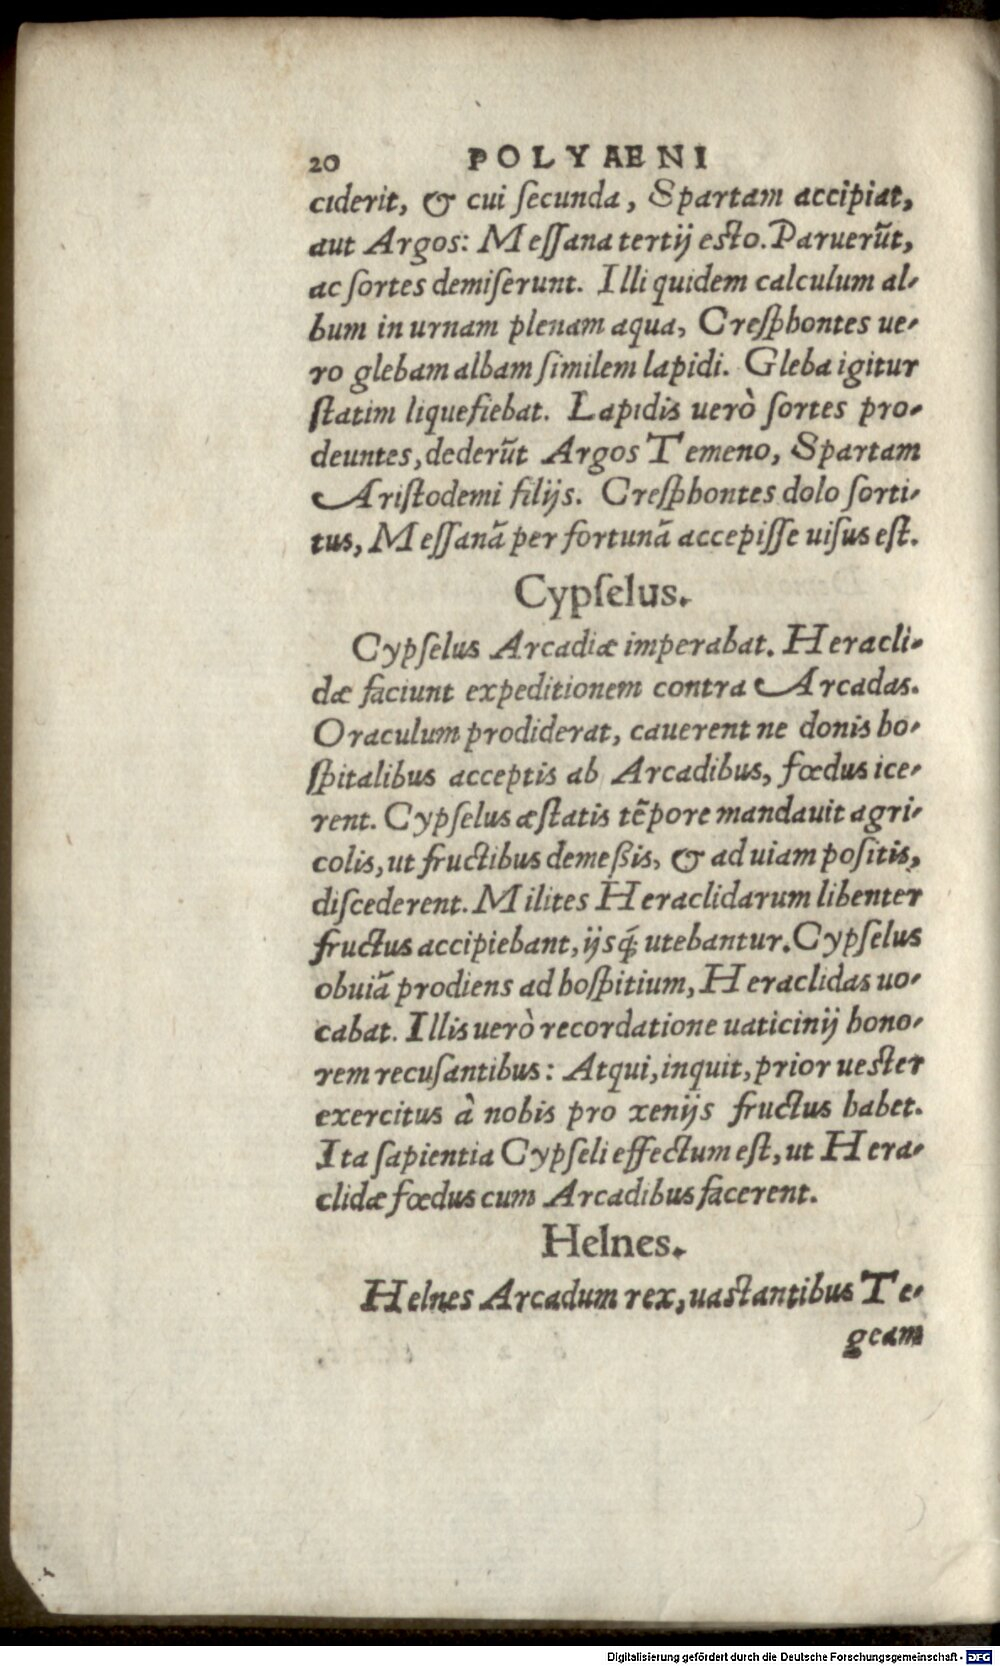 20 POLYAENI
ciderit, & cui ſecunda, Spartam accipiat,
aut Argos: Meſſana tertij esto. Paruerũt,
ac ſortes demiſerunt. Illi quidem calculum al-
bum in urnam plenam aqua, Creſphontes ue-
ro glebam albam ſimilem lapidi. Gleba igitur
ſtatim liquefiebat. Lapidis uerò ſortes pro-
deuntes, dederũt Argos Temeno, Spartam
Ariſtodemi filijs. Creſphontes dolo ſorti-
tus, Meſſanã per fortunã accepiſſe uiſus eſt.
Cypſelus.
Cypſelus Arcadiæ imperabat. Heracli-
dæ faciunt expeditionem contra Arcadas.
Oraculum prodiderat, cauerent ne donis ho-
ſpitalibus acceptis ab Arcadibus, fœdus ice-
rent. Cypſelus æſtatis tẽpore mandauit agri-
colis, ut fructibus demeßis, & ad uiam poſitis,
diſcederent. Milites Heraclidarum libenter
fructus accipiebant, ijsq́; utebantur. Cypſelus
obuiã prodiens ad hoſpitium, Heraclidas uo-
cabat. Illis uerò recordatione uaticinij hono-
rem recuſantibus: Atqui, inquit, prior uester
exercitus à nobis pro xenijs fructus habet.
Ita ſapientia Cypſeli effectum eſt, ut Hera-
clidæ fœdus cum Arcadibus facerent.
Helnes.
Helnes Arcadum rex, uastantibus Te-
geam
Digitalisierung gefördert durch die Deutsche Forschungsgemeinschaft - DFG